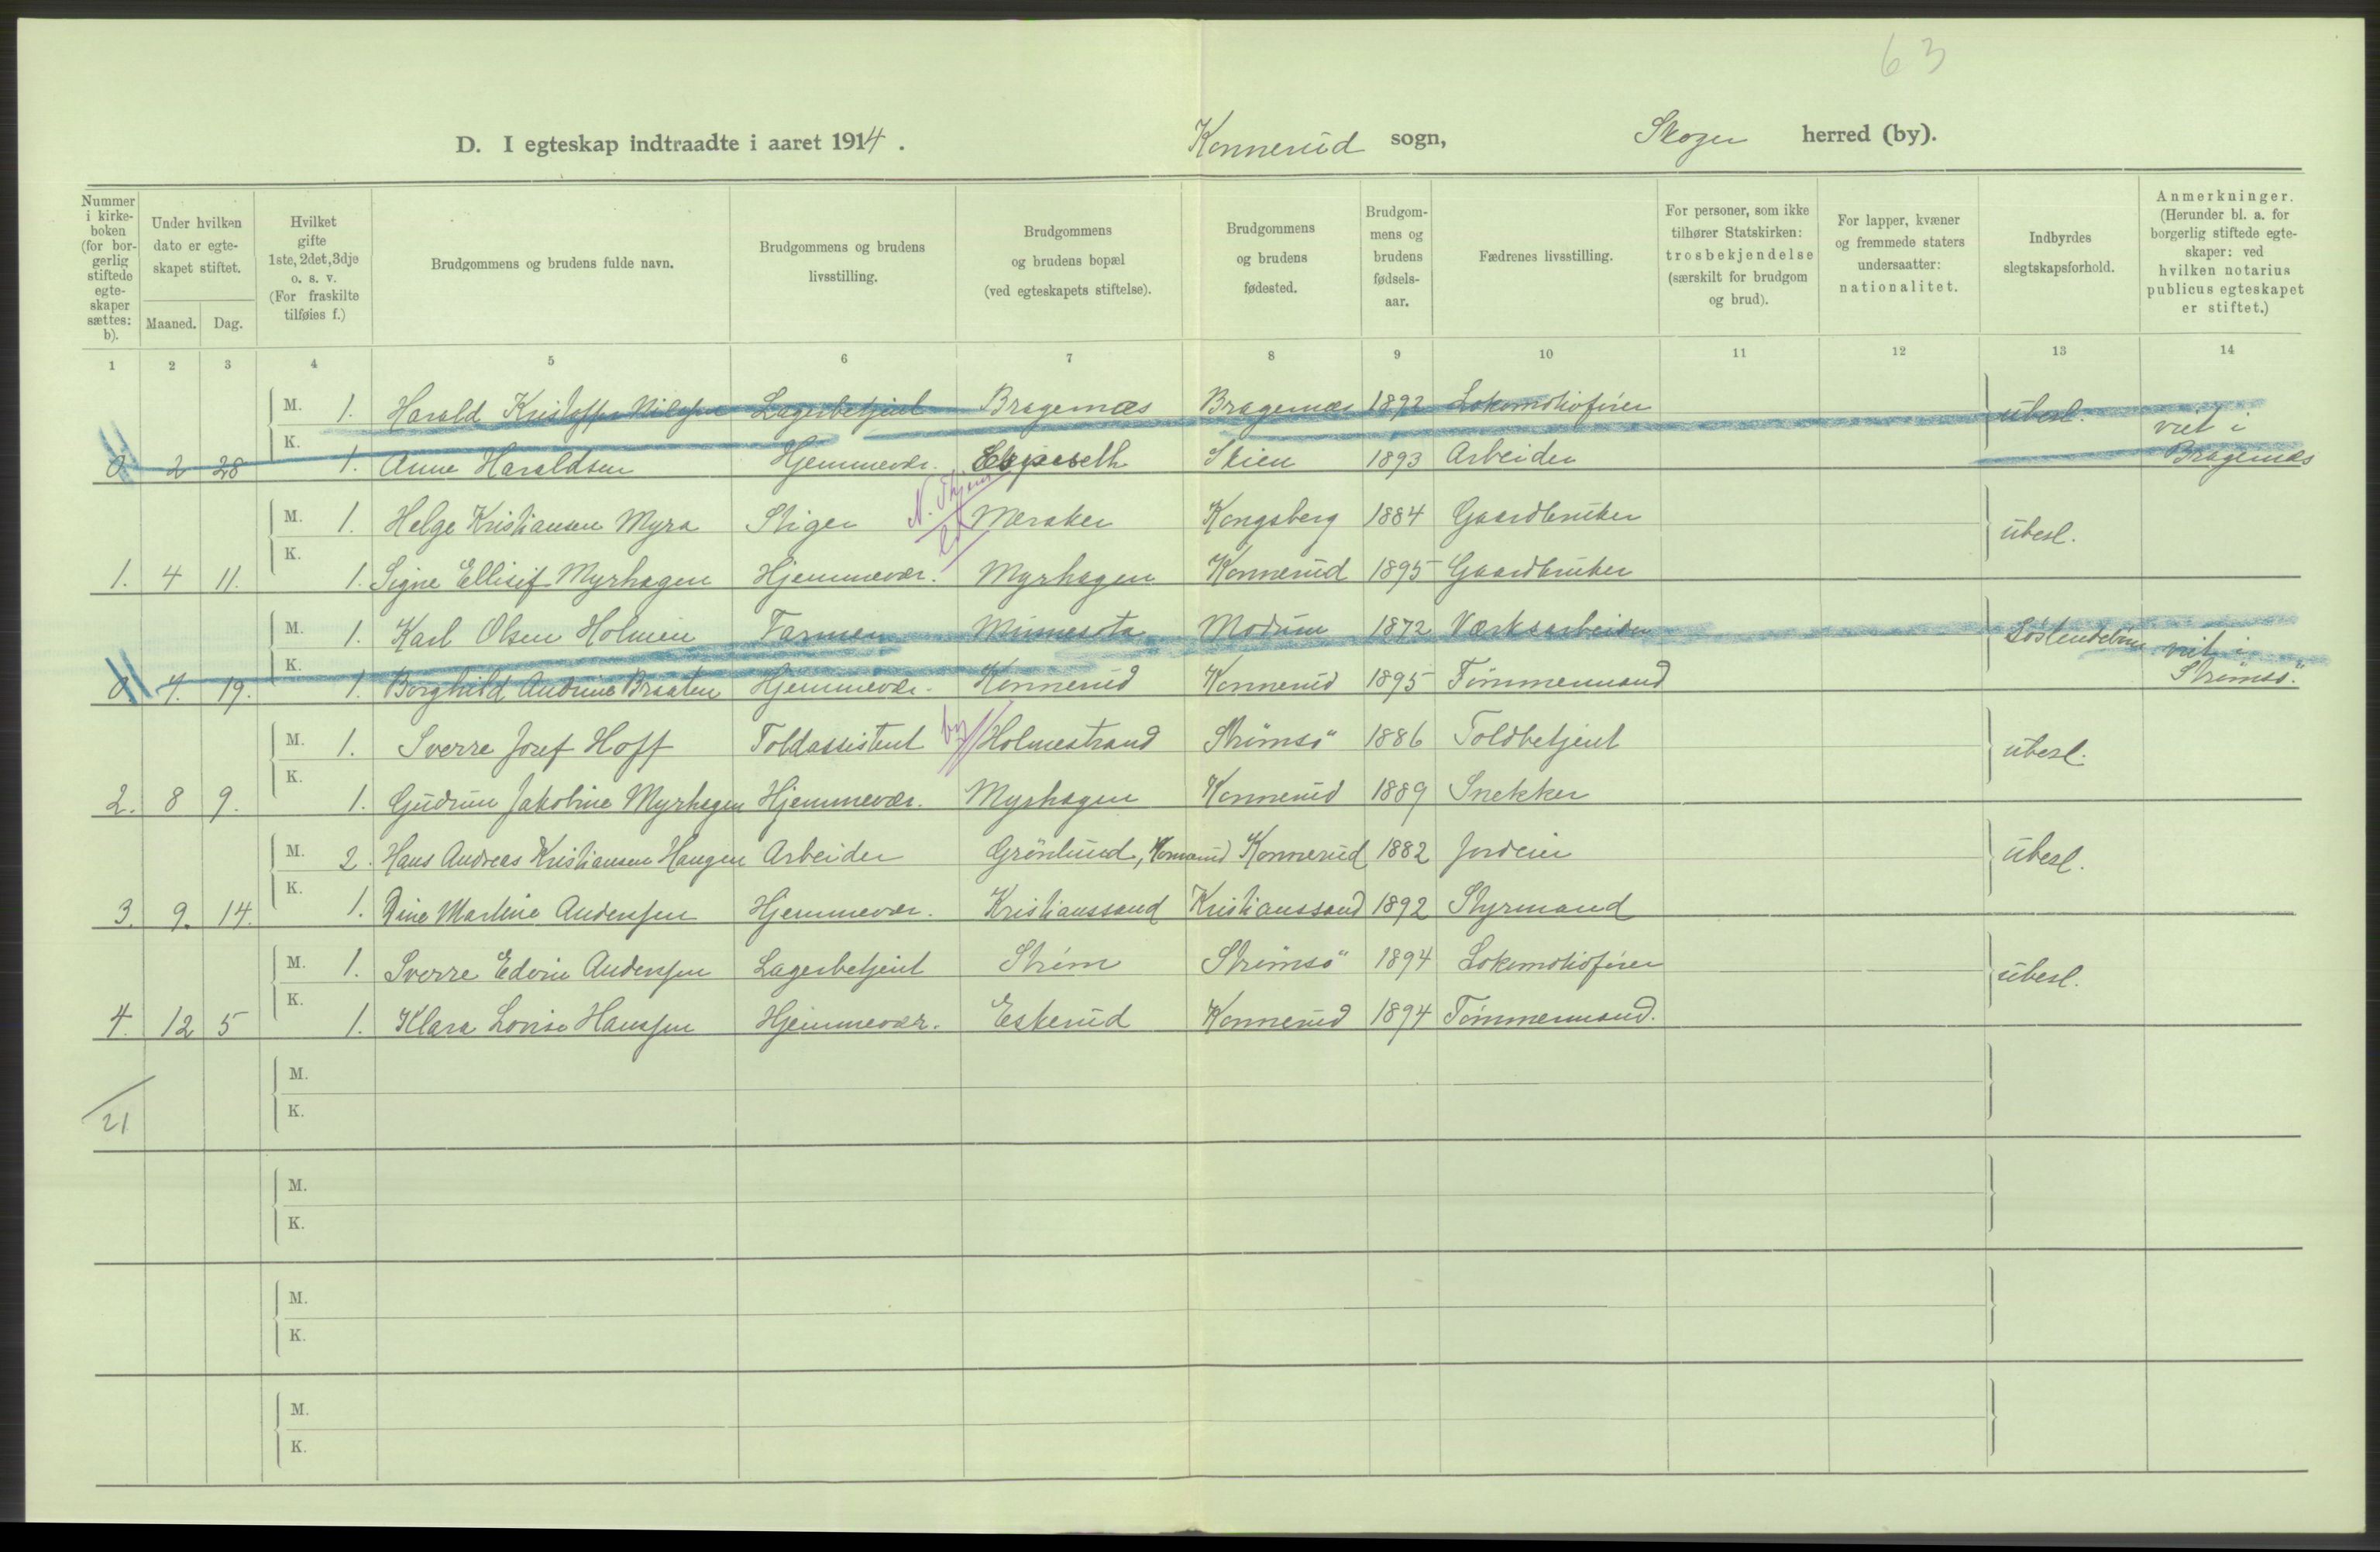 63
D. I egteskap indtraadte i aaret 1914. Konnerud sogn, Skoger herred (by).
Nummer i kirke-boken (for bor-gerlig stiftede egte-skaper sættes: b).
Under hvilken dato er egte-skapet stiftet.
Maaned. Dag.
Hvilket gifte 1ste, 2det, 3dje o. s. v. (For fraskilte tilføies f.)
Brudgommens og brudens fulde navn.
Brudgommens og brudens livsstilling.
Brudgommens og brudens bopæl (ved egteskapets stiftelse).
Brudgommens og brudens fødested.
Brudgom-mens og brudens fødsels-aar.
Fædrenes livsstilling.
For personer, som ikke tilhører Statskirken: trosbekjendelse (særskilt for brudgom og brud).
For lapper, kvæner og fremmede staters undersaatter: nationalitet.
Indbyrdes slegtskapsforhold.
Anmerkninger. (Herunder bl. a. for borgerlig stiftede egte-skaper: ved hvilken notarius publicus egteskapet er stiftet.)
1 2 3 4 5 6 7 8 9 10 11 12 13 14
M. 1. Harald Kristoffer Nilsen Lagerbetjent Bragernæs Bragernæs 1892 Lokomotivfører ubesl. viet i
0 2 28 K. 1. Anne Haraldsen Hjemmevær. Skien 1893 Arbeider Bragernæs
M. 1. Helge Kristiansen Myra Stiger Meraker Kongsberg 1884 Gaardbruker ubesl.
1. 4 11. K. 1. Signe Ellisif Myrhagen Hjemmevær. Myrhagen Konnerud 1895 Gaardbruker
M. 1. Karl Olsen Holmen Farmer Minnesota Modum 1872 Værksarbeider Søskendebarn viet i
0 7. 19. K. 1. Borghild Andrine Braaten Hjemmevær. Konnerud Konnerud 1895 Tømmermand Strømsö.
M. 1. Sverre Josef Hoff Toldassistent by Holmestrand Strømsö 1886 Toldbetjent ubesl.
2. 8 9. K. 1. Gudrun Jakobine Myrhagen Hjemmevær. Myrhagen Konnerud 1889 Snekker
M. 2. Hans Andreas Kristiansen Haugen Arbeider Grönlund, Konnerud Konnerud 1882 Jordeier ubesl.
3. 9. 14. K. 1. Dine Martine Andersen Hjemmevær. Kristianssand Kristianssand 1892 Styrmand
M. 1. Sverre Edvin Andersen Lagerbetjent Strøm Strømsö 1894 Lokomotivfører ubesl.
4. 12 5 K. 1. Klara Lovise Hansen Hjemmevær. Eskerud Konnerud 1894 Tømmermand.
M.
21 K.
M.
K.
M.
K.
M.
K.